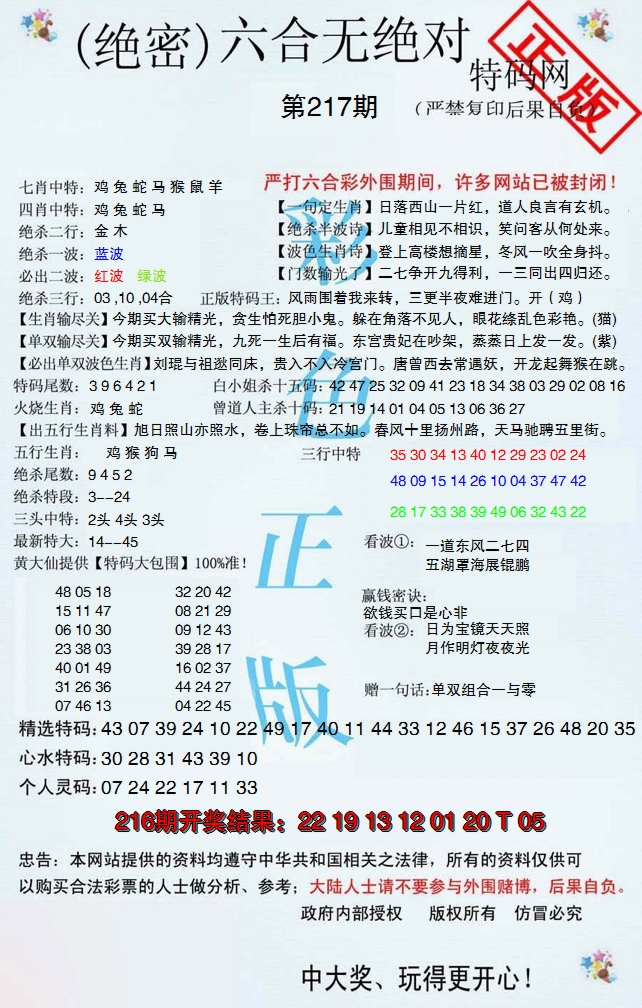 (绝密)六合无绝对
特码网
正版
第217期
(严禁复印后果自负)
七肖中特：鸡 兔 蛇 马 猴 鼠 羊
严打六合彩外围期间，许多网站已被封闭！
四肖中特：鸡 兔 蛇 马
【一句定生肖】日落西山一片红，道人良言有玄机。
绝杀二行：金 木
【绝杀半波诗】儿童相见不相识，笑问客从何处来。
绝杀一波：蓝波
【波色生肖诗】登上高楼想摘星，冬风一吹全身抖。
必出二波：红波 绿波
【门数输光了】二七争开九得利，一三同出四归还。
绝杀三行：03 ,10 ,04合
正版特码王：风雨围着我来转，三更半夜难进门。开（鸡）
【生肖输尽关】今期买大输精光，贪生怕死胆小鬼。躲在角落不见人，眼花缭乱色彩艳。(猫)
【单双输尽关】今期买双输精光，九死一生后有福。东宫贵妃在吵架，蒸蒸日上发一发。(紫)
【必出单双波色生肖】刘琨与祖逖同床，贵入不入冷宫门。唐曾西去常遇妖，开龙起舞猴在跳。
特码尾数：3 9 6 4 2 1
白小姐杀十五码：42 47 25 32 09 41 23 18 34 38 03 29 02 08 16
火烧生肖：鸡 兔 蛇
曾道人主杀十码：21 19 14 01 04 05 13 06 36 27
【出五行生肖料】旭日照山亦照水，卷上珠帘总不如。春风十里扬州路，天马驰聘五里街。
五行生肖：鸡 猴 狗 马
三行中特
35 30 34 13 40 12 29 23 02 24
绝杀尾数：9 4 5 2
48 09 15 14 26 10 04 37 47 42
绝杀特段：3--24
28 17 33 38 39 49 06 32 43 22
三头中特：2头 4头 3头
最新特大：14--45
看波①：一道东风二七四
五湖罩海展锟鹏
黄大仙提供【特码大包围】100%准！
48 05 18 32 20 42
15 11 47 08 21 29
06 10 30 09 12 43
23 38 03 39 28 17
40 01 49 16 02 37
31 26 36 44 24 27
07 46 13 04 22 45
赢钱密诀：
欲钱买口是心非
看波②：日为宝镜天天照
月作明灯夜夜光
赠一句话:单双组合一与零
精选特码：43 07 39 24 10 22 49 17 40 11 44 33 12 46 15 37 26 48 20 35
心水特码：30 28 31 43 39 10
个人灵码：07 24 22 17 11 33
216期开奖结果：22 19 13 12 01 20 T 05
忠告：本网站提供的资料均遵守中华共和国相关之法律，所有的资料仅供可
以购买合法彩票的人士做分析、参考；大陆人士请不要参与外围赌博，后果自负。
政府内部授权 版权所有 仿冒必究
中大奖、玩得更开心！
彩色正版